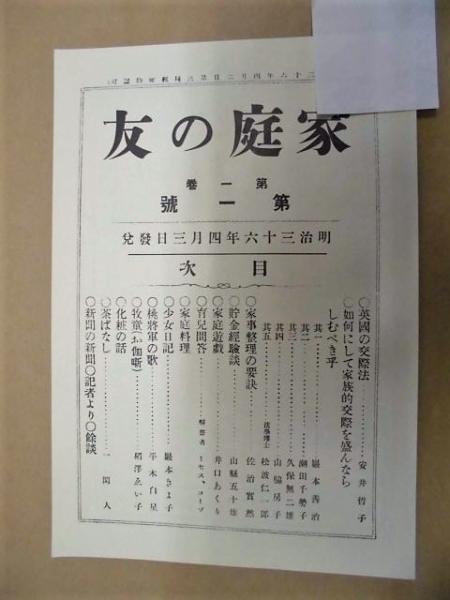 家庭の友
第一卷
第一號
明治三十六年四月三日發兌
目次
○英國の交際法 安井哲子
○如何にして家族的交際を盛んならしむべき乎
其一 巖本善治
其二 潮田千勢子
其三 久保無二雄
其四 山脇房子
其五 法學博士 松波仁一郎
○家事整理の要訣 佐治實然
○貯金經驗談 山縣五十雄
○家庭遊戯 井口あくり
○育兒問答 解答者 ミセス、コーブ
○家庭料理
○少女日記 巖本きよ子
○桃將軍の歌 平木白星
○牧童(お伽噺) 相澤ゑい子
○化粧の話
○茶ばなし 一閑人
○新聞の新聞○記者より○餘談